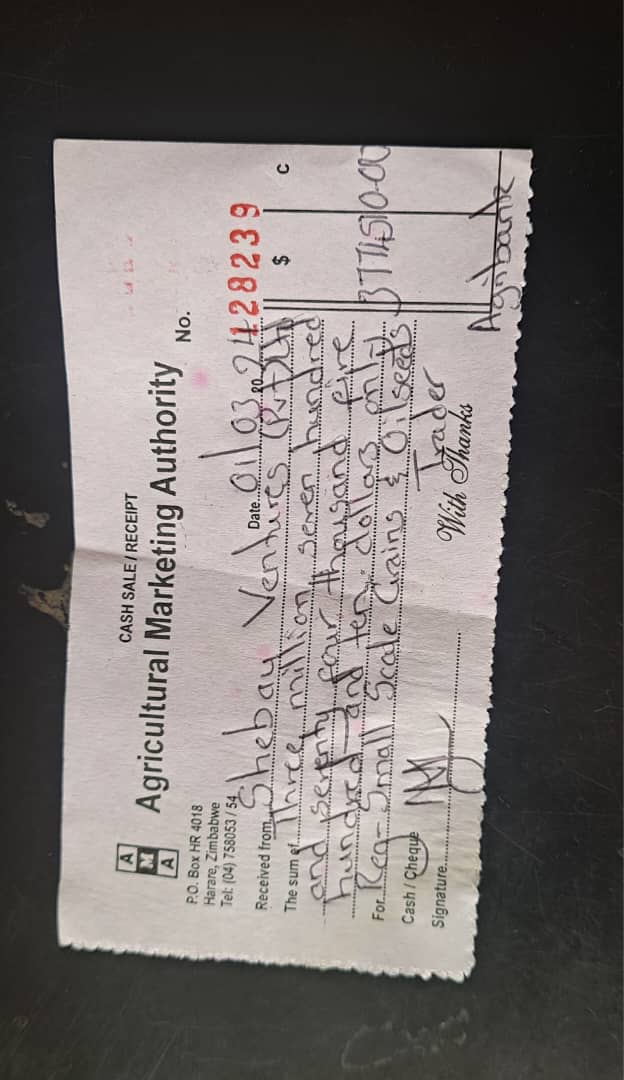 CASH SALE / RECEIPT
A
M
A
Agricultural Marketing Authority
P.O. Box HR 4018
Harare, Zimbabwe
Tel: (04) 758053 / 54
No. 128239
Date 01/03 2024
Received from Shebay Ventures (Pvt) Ltd
$ C
The sum of Three million seven hundred
and seventy four thousand five
hundred and ten dollars only
3774510-00
For Reg- Small Scale Grains & Oilseeds
Trader
Cash / Cheque
Agribank
With Thanks
Signature